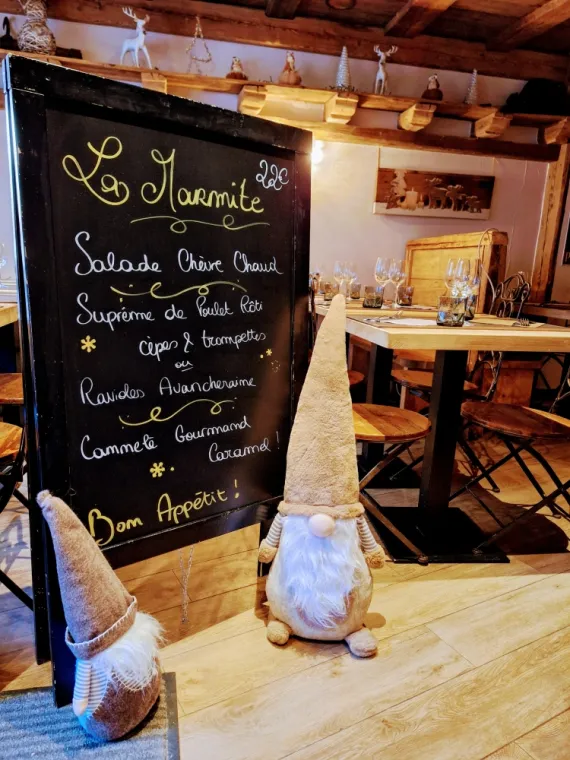 La Marmite 22€
Salade Chèvre Chaud
Suprème de Poulet Rôti
cèpes & trompettes
ou
Ravioles Avancheraine
Cammele Gourmand
Caramel !
Bon Appétit !